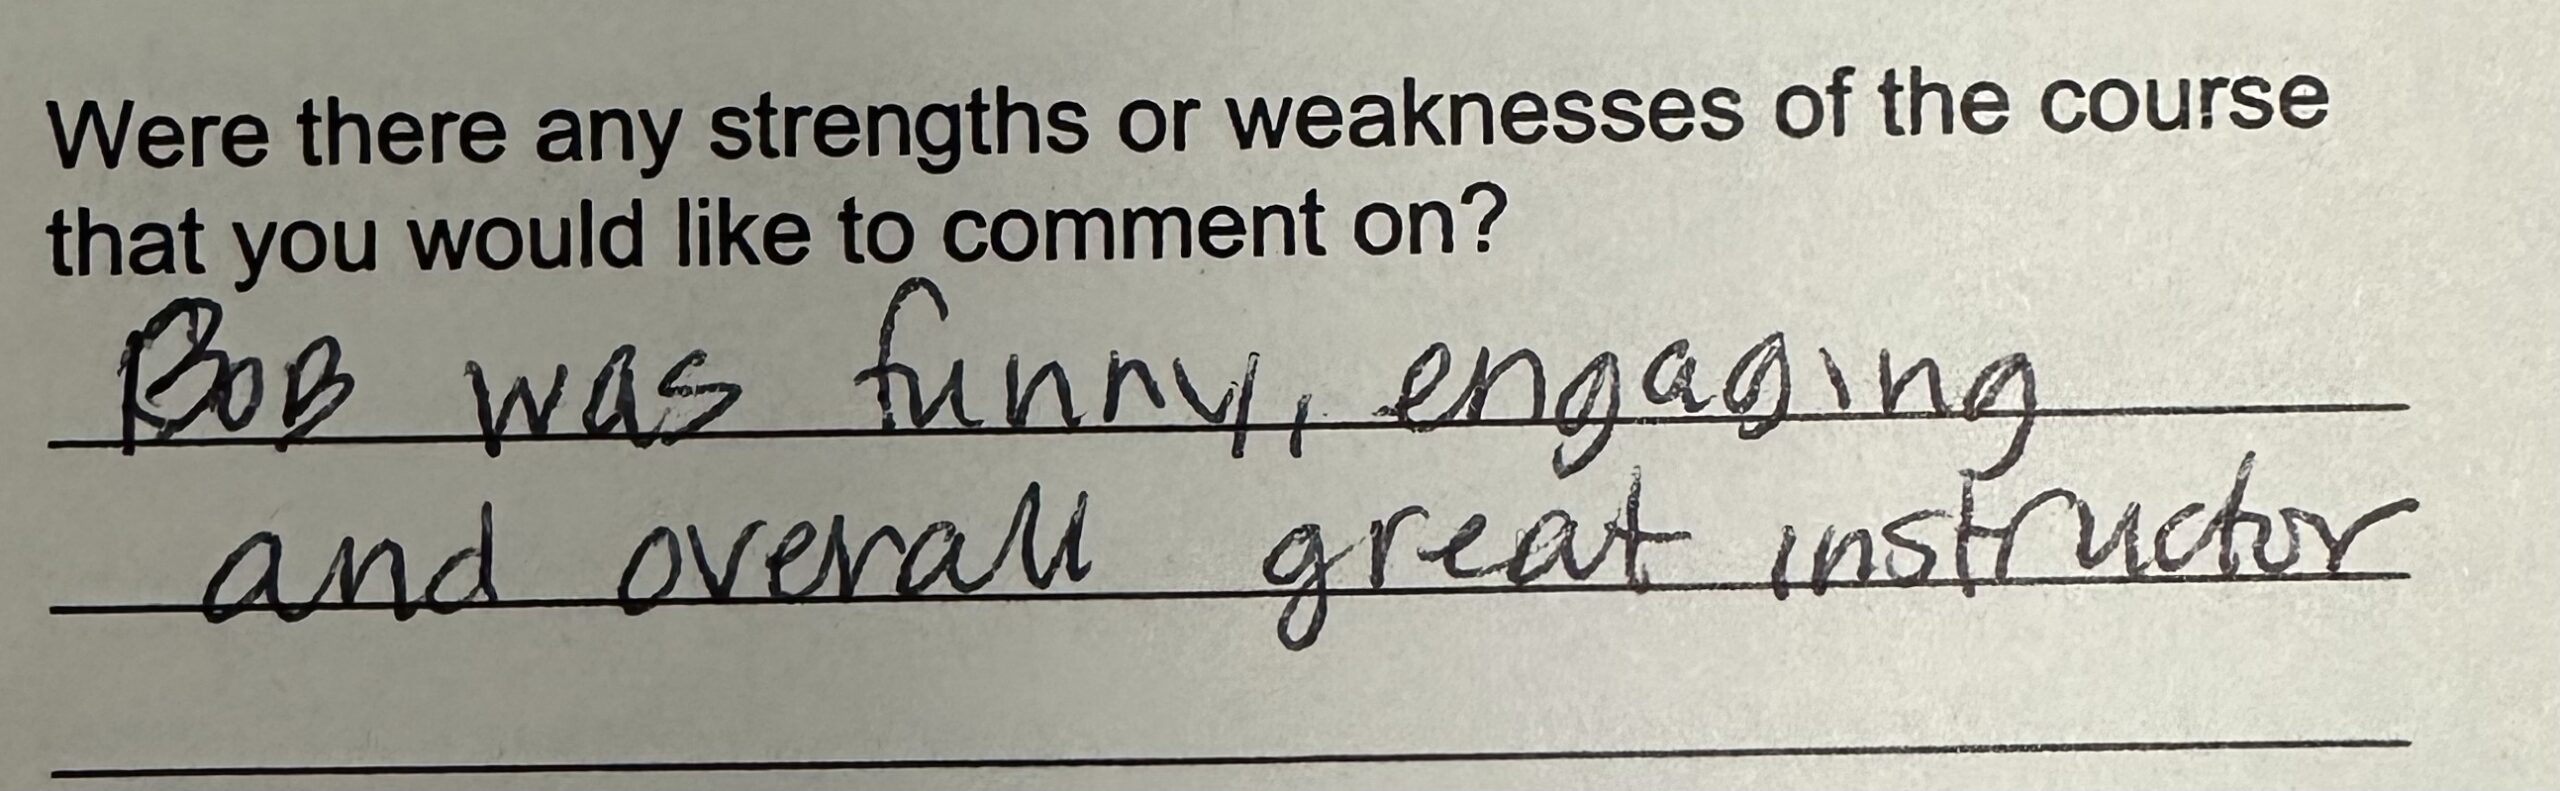 Were there any strengths or weaknesses of the course
that you would like to comment on?
BoB was funny, engaging
and overall great instructor